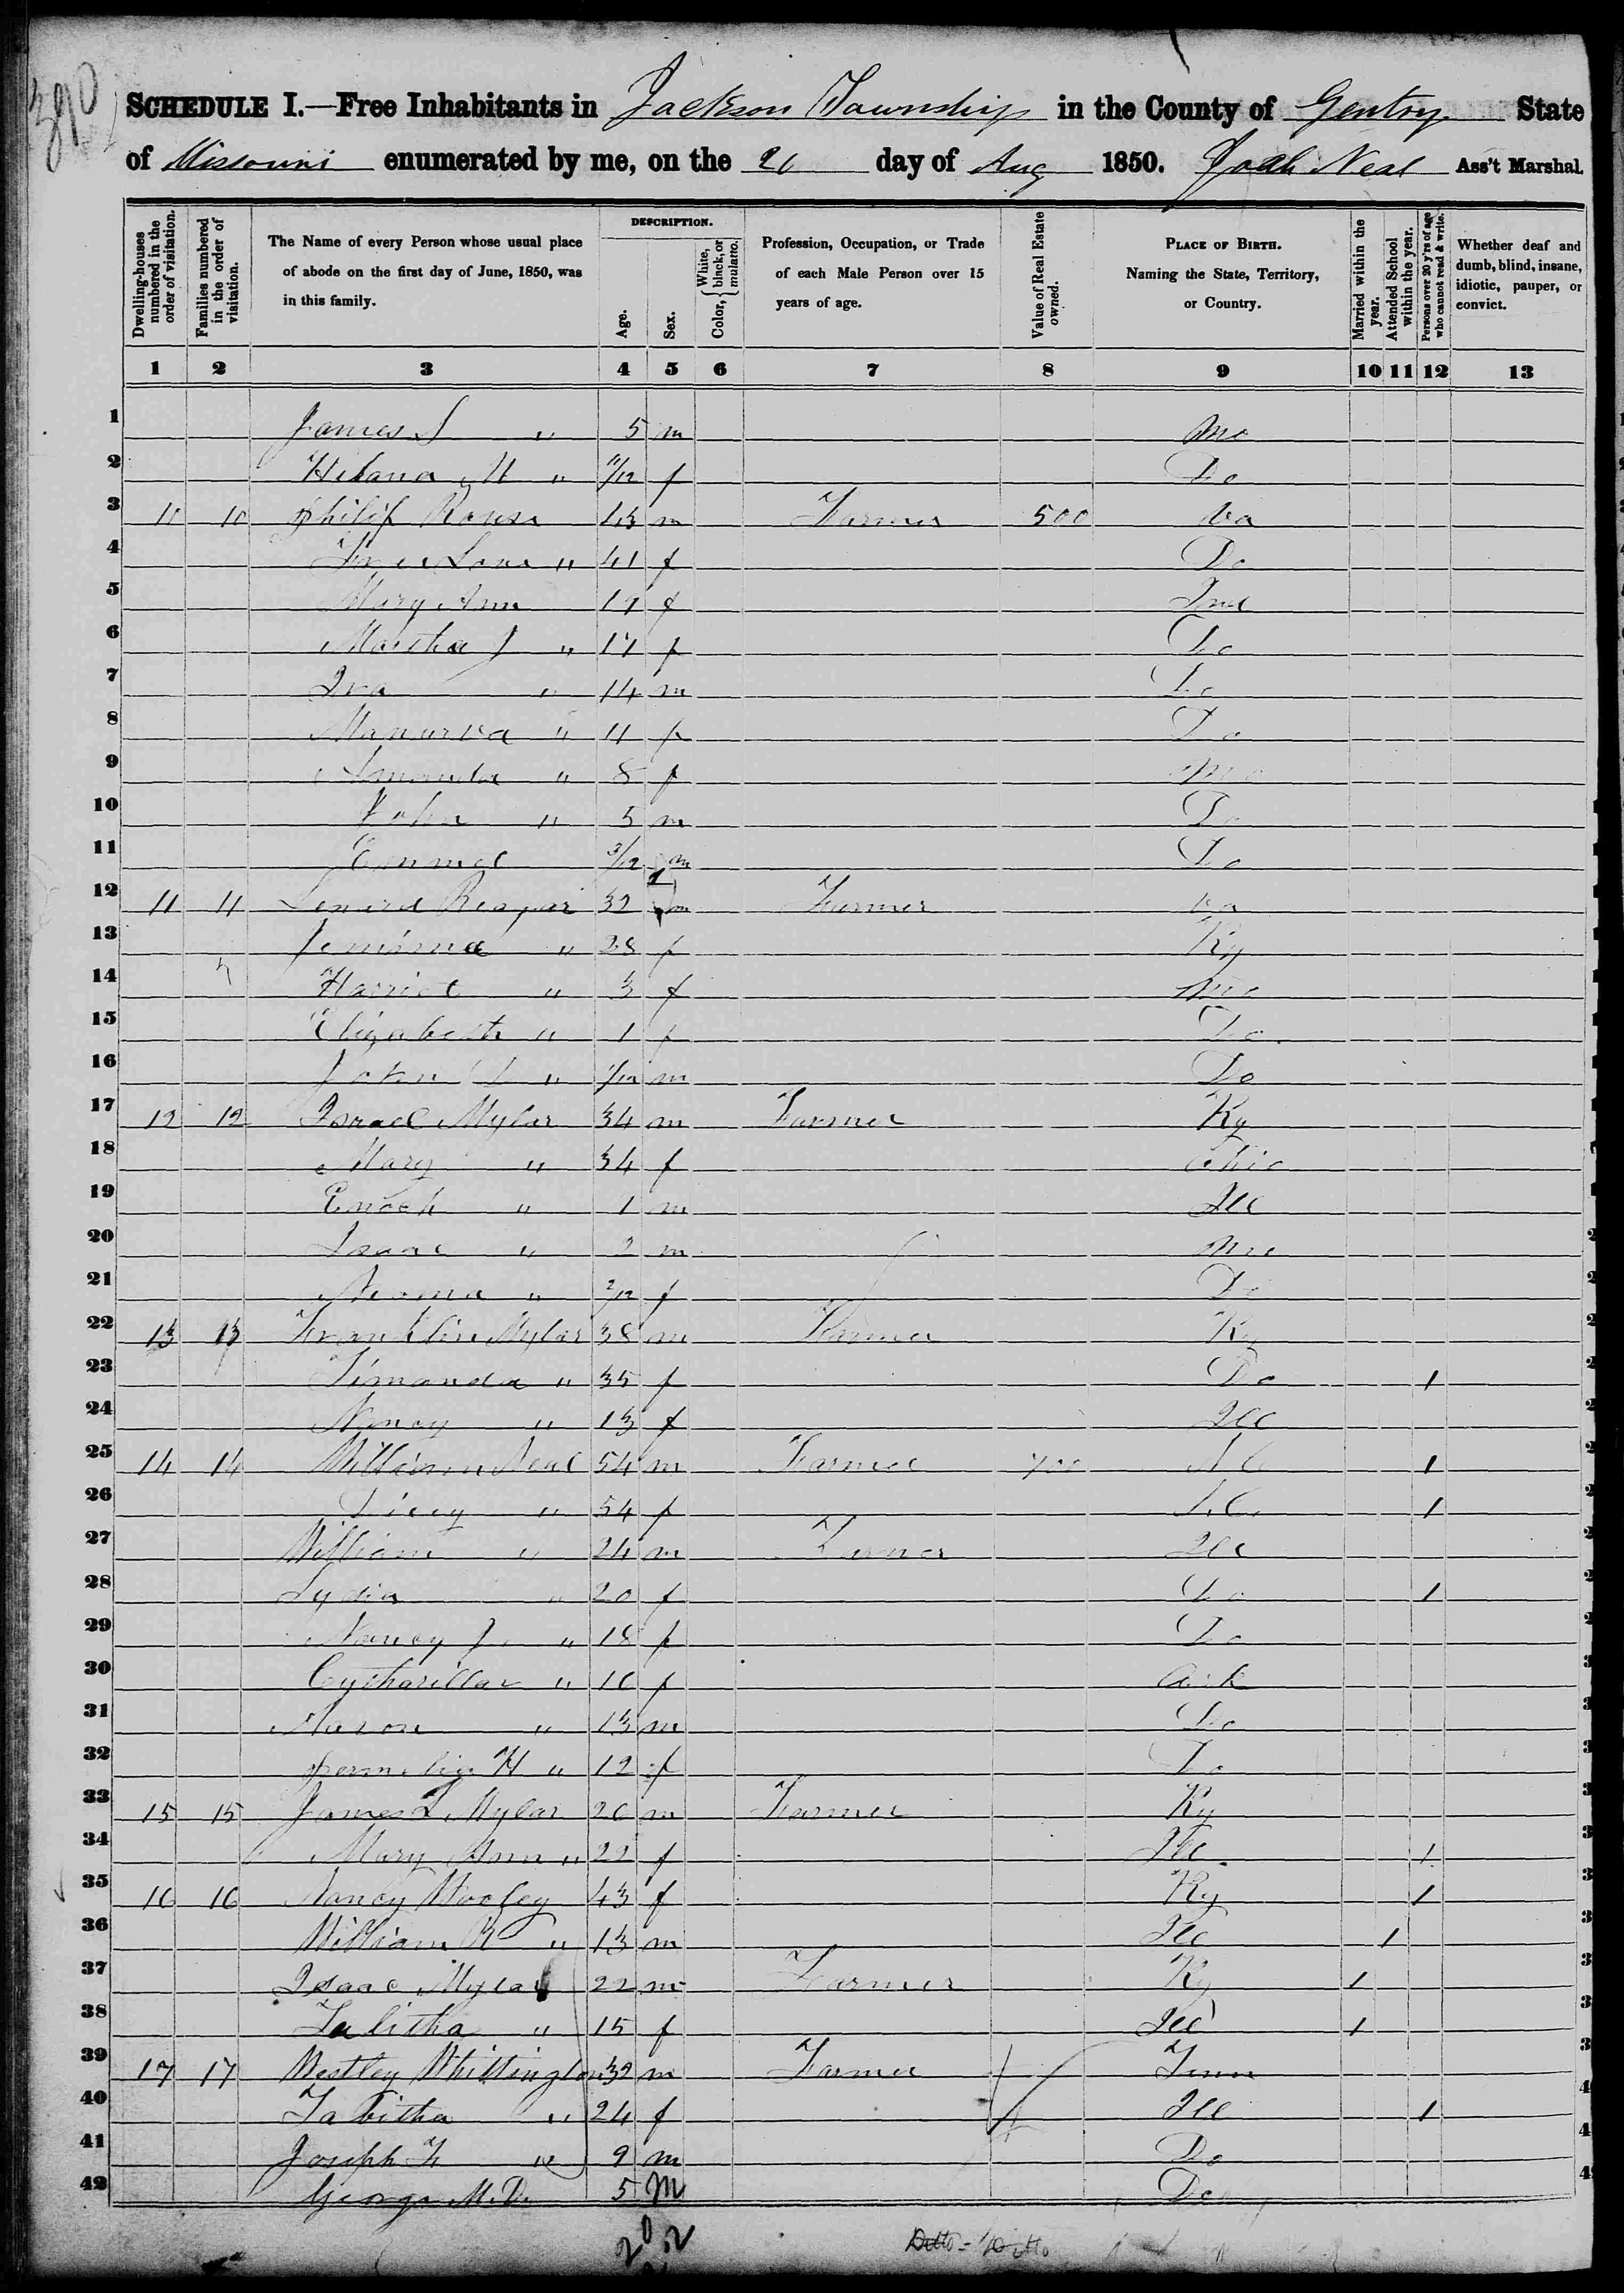 390
SCHEDULE I.—Free Inhabitants in Jackson Township in the County of Gentry State
of Missouri enumerated by me, on the 26 day of Aug 1850. Ass't Marshal.
Dwelling-houses numbered in the order of visitation.
Families numbered in the order of visitation.
The Name of every Person whose usual place of abode on the first day of June, 1850, was in this family.
DESCRIPTION.
Age.
Sex.
Color, { White, black, or mulatto.
Profession, Occupation, or Trade of each Male Person over 15 years of age.
Value of Real Estate owned.
PLACE OF BIRTH. Naming the State, Territory, or Country.
Married within the year.
Attended School within the year.
Persons over 20 y'rs of age who cannot read & write.
Whether deaf and dumb, blind, insane, idiotic, pauper, or convict.
1 2 3 4 5 6 7 8 9 10 11 12 13
1 James S " 5 m Mo
2 " 11/12 f Do
3 10 10 philip 43 m Farmer 500 Va
4 " 41 f Do
5 Mary Ann 19 f Ind
6 Martha J " 17 f Do
7 Ira " 14 m Do
8 Manurva " 11 f Do
9 Amanda " 8 f Mo
10 John " 5 m Do
11 3/12 m Do
12 11 11 32 m Farmer Va
13 Jemima " 28 f Ky
14 Harriet " 3 f Mo
15 Elizabeth " 1 f Do
16 John " 1/12 m Do
17 12 12 Israel Mylar 34 m Farmer Ky
18 Mary " 34 f Ohio
19 Enoch " m Ill
20 Isaac " 2 m Mo
21 Neoma " 2/12 f Do
22 13 13 Franklin Mylar 38 m Farmer Ky
23 Timanda " 35 f Do 1
24 Nancy " 13 f Ill
25 14 14 William Neal 54 m Farmer 700 N C 1
26 " 54 f 1
27 William " 24 m Farmer Ill
28 Lydia " 20 f Do 1
29 Nancy J " 18 f Do
30 " 16 f Ark
31 Aaron " 13 m Do
32 permelia H " 12 f Do
33 15 15 James L Mylar 26 m Farmer Ky
34 Mary Ann " 22 f Ill 1
35 16 16 Nancy Wooley 43 f Ky 1
36 William R " 13 m Ill 1
37 Isaac Mylar 22 m Farmer Ky 1
38 Talitha " 15 f Ill 1
39 17 17 Westley Whittington 32 m Farmer Tenn
40 Tabitha " 24 f Ill 1
41 Joseph F " 9 m Do
42 George M. D. 5 M Do
Ditto - Ditto